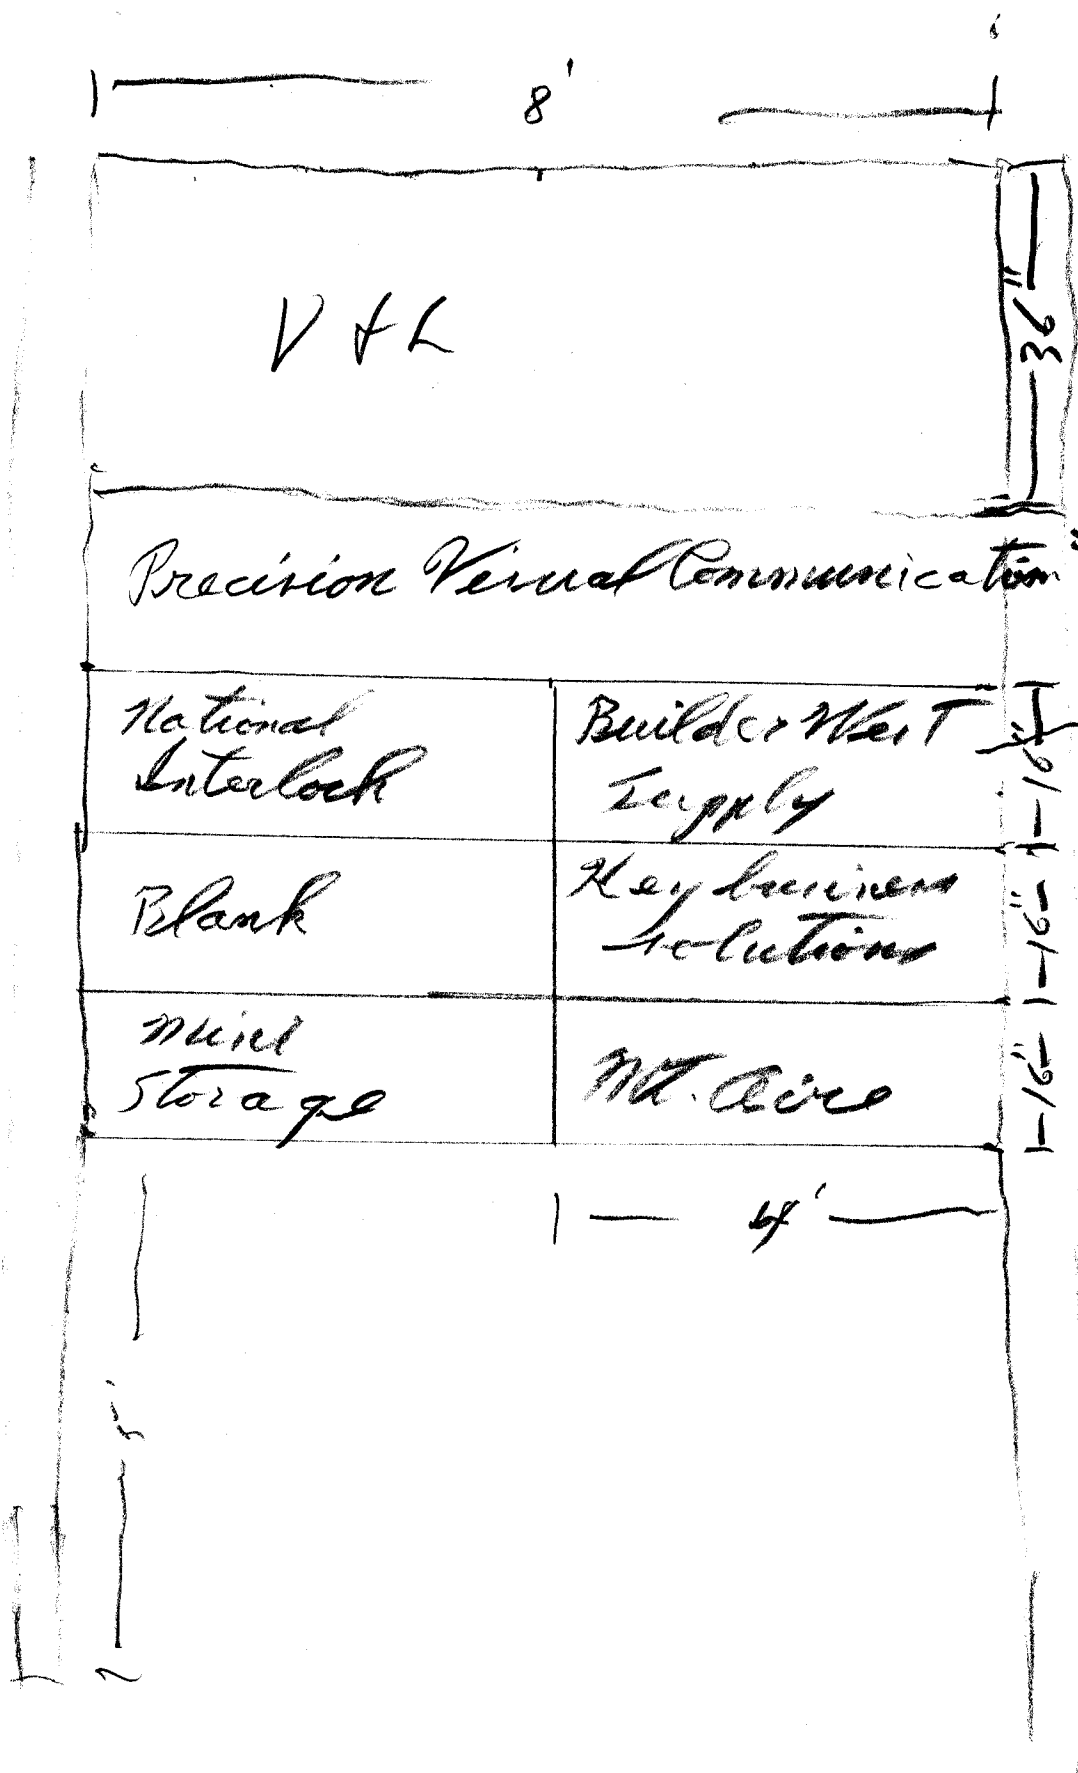 8'
V & L
36"
Precision Visual Communication
National
Interlock
Builder West
Supply
16"
Blank
Key business
solutions
16"
Mini
Storage
Mt. Aire
16"
4'
5'